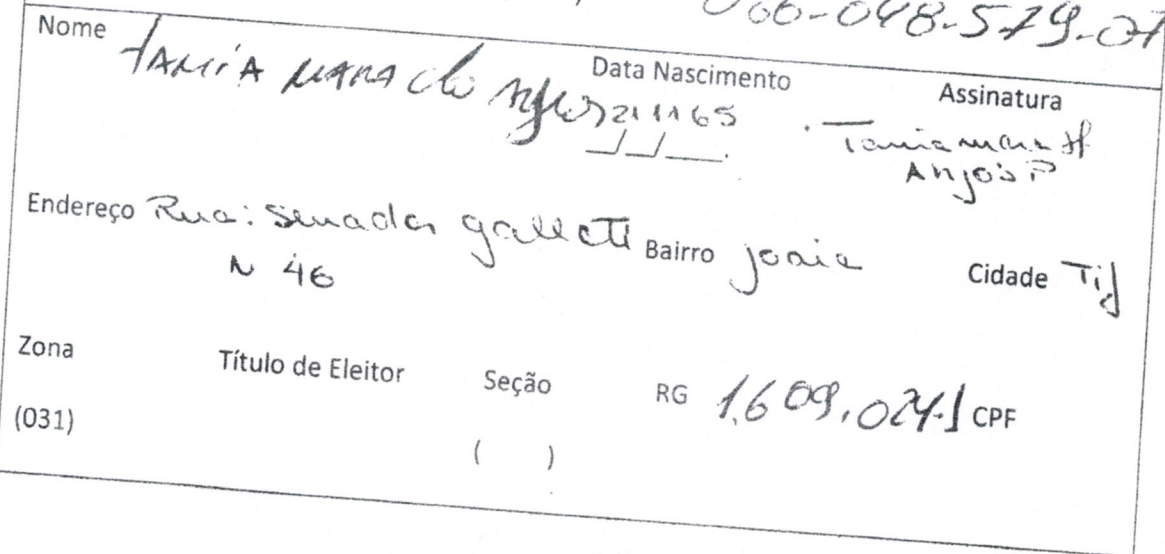 066-048-579-07
Nome TAMIA MARA do Anjos Data Nascimento 211165 Assinatura
_/_/__. Tania mara
Anjos P
Endereço Rua: Senador galletti Bairro joaia Cidade Tij
N 46
Zona Título de Eleitor Seção RG 1.609.024-1 CPF
(031) ( )